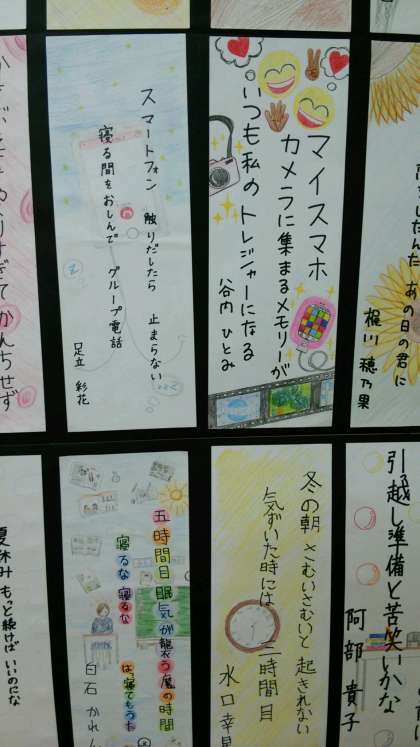 あの日の君に
梶川 穂乃果
マイスマホ
カメラに集まるメモリーが
いつも私の トレジャーになる
谷内 ひとみ
スマートフォン 触りだしたら 止まらない
寝る間をおしんで グループ電話
足立 彩花
すぎてかんちせず
引っ越し準備と苦笑いかな
阿部 貴子
冬の朝 さむいさむいと 起きれない
気ずいた時には 二時間目
水口 幸
五時間目 眠気が襲う 魔の時間
寝るな 寝るな は、寝てもうた
白石 かれん
夏休み もっと続けば いいのにな